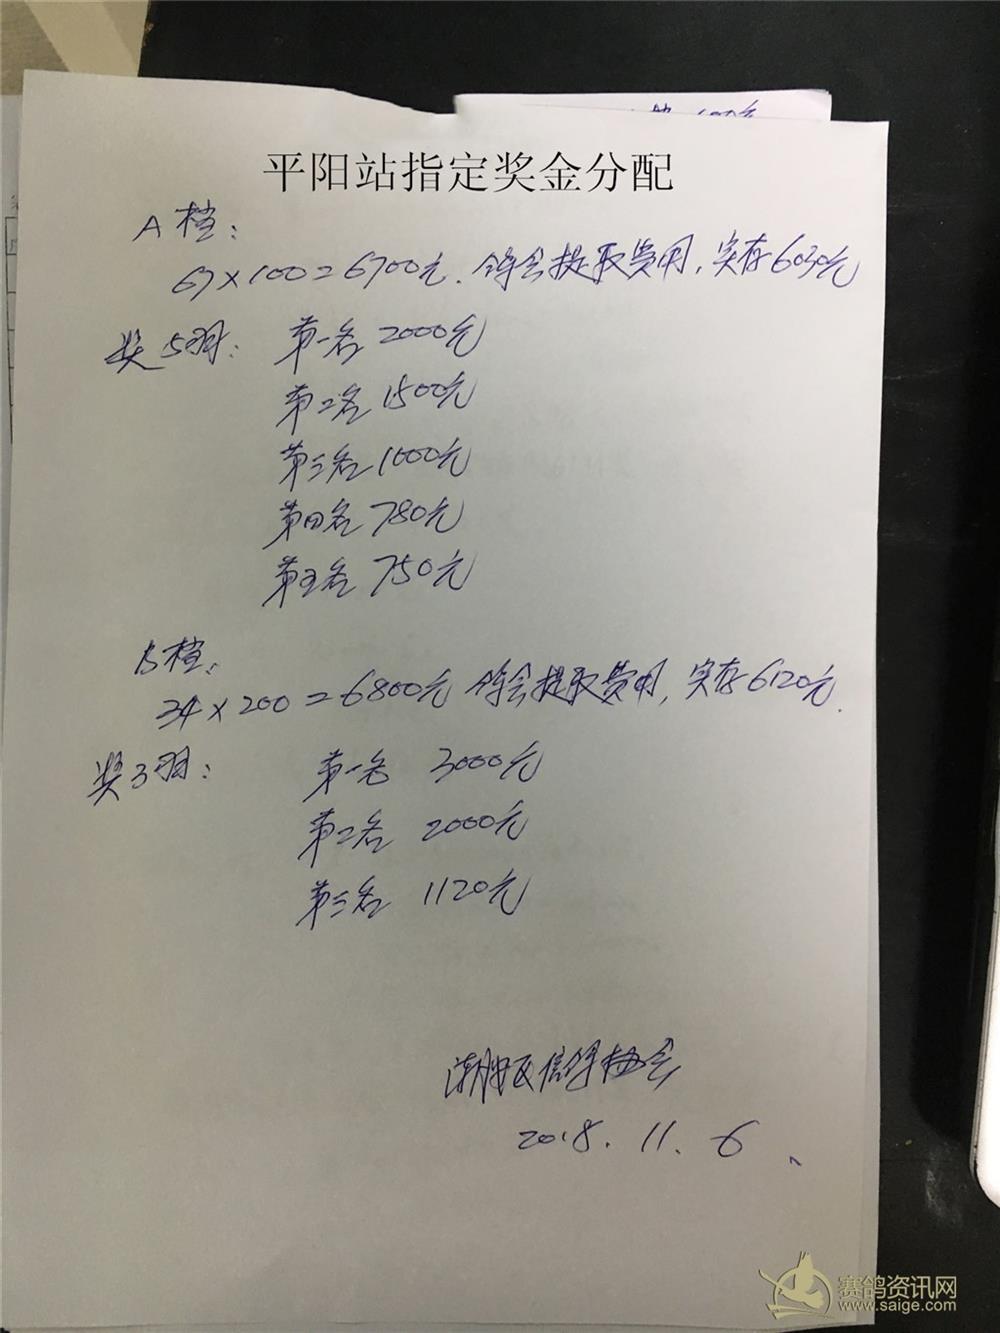 平阳站指定奖金分配
A档:
67×100=6700元.鸽会提取费用,实存6030元
奖5羽: 第一名 2000元
第二名 1500元
第三名 1000元
第四名 780元
第五名 750元
B档:
34×200=6800元 鸽会提取费用,实存6120元.
奖3羽: 第一名 3000元
第二名 2000元
第三名 1120元
潮安区信鸽协会
2018.11.6
赛鸽资讯网
www.saige.com